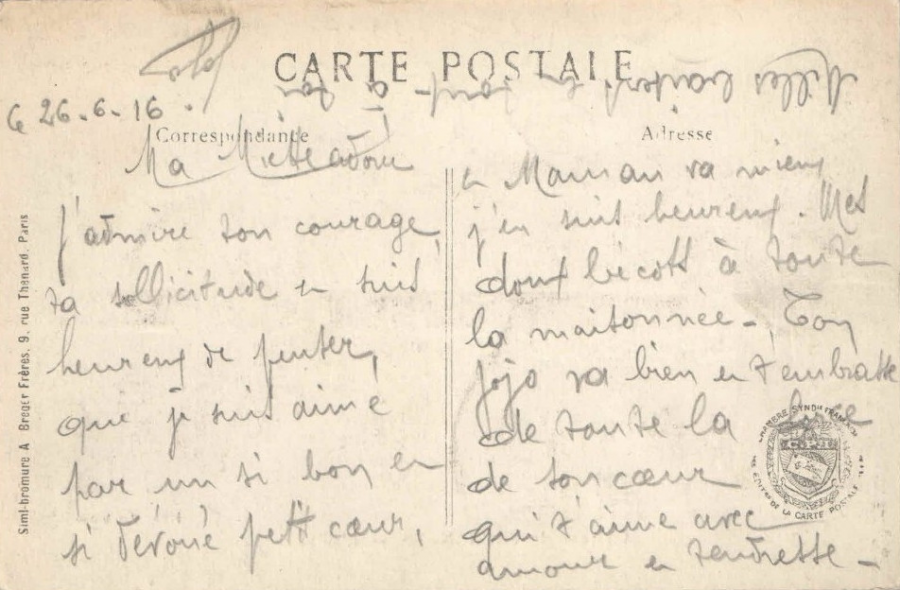 CARTE POSTALE
Milles
6 26-6-16.
Correspondance
Adresse
Ma adorée
j'admire ton courage,
ta sollicitude et suis
heureux de penser,
que je suis aimé
par un si bon et
si dévoué petit cœur,
et Maman va mieux
j'en suis heureux. Mes
doux bécots à toute
la maisonnée - Ton
Jojo va bien et t'embrasse
de toute la force
de son cœur
qui t'aime avec
amour et tendresse -
Simi-bromure A Breger Frères, 9, rue Thenard. Paris
DE LA CARTE POSTALE